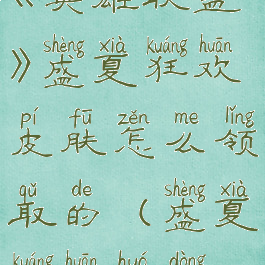 《英雄联盟
shèng xià kuáng huān
》盛夏狂欢
pí fū zěn me lǐng
皮肤怎么领
qǔ de shèng xià
取的（盛夏
kuáng huān huó dòng